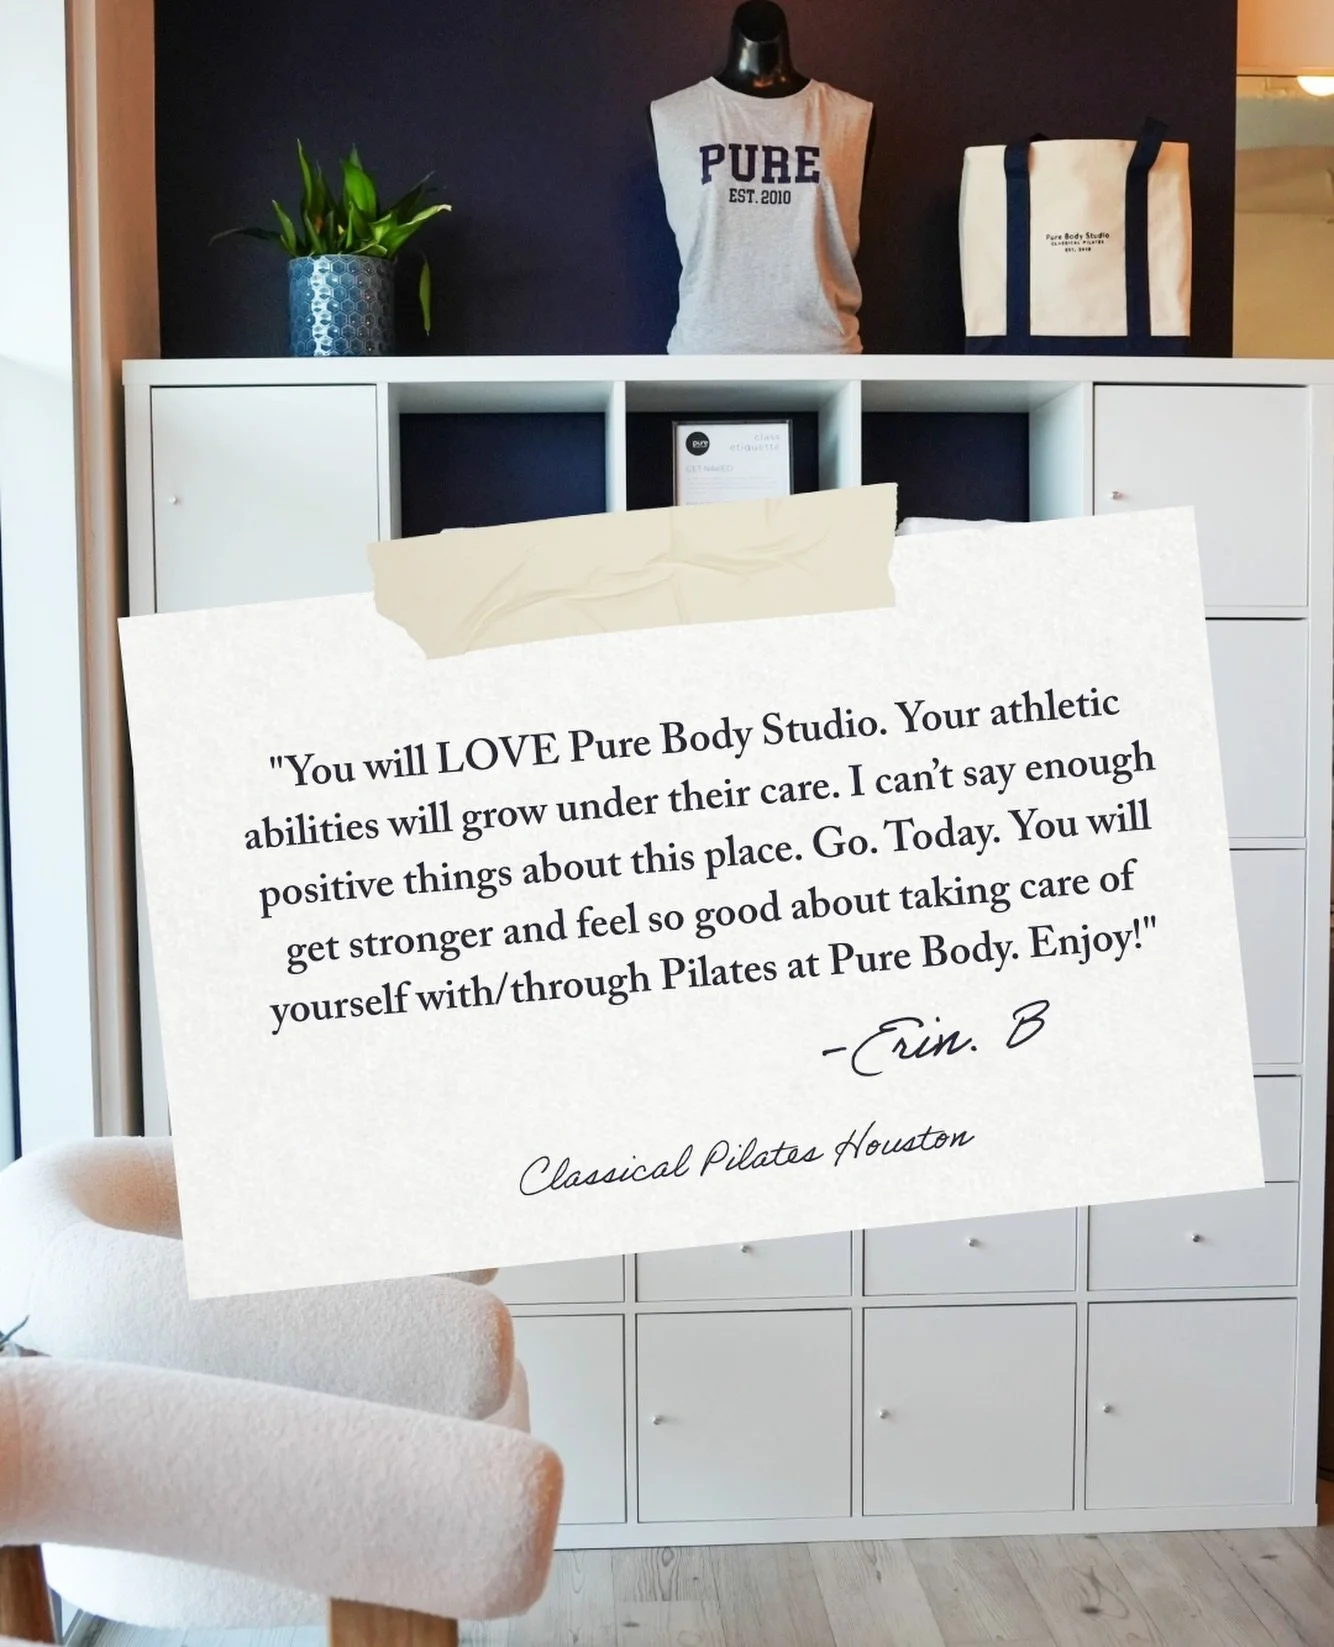 PURE
EST. 2010
Pure Body Studio
CLASSICAL PILATES
EST. 2010
pure
class
etiquette
GET NAKED
"You will LOVE Pure Body Studio. Your athletic
abilities will grow under their care. I can't say enough
positive things about this place. Go. Today. You will
get stronger and feel so good about taking care of
yourself with/through Pilates at Pure Body. Enjoy!"
-Erin. B
Classical Pilates Houston